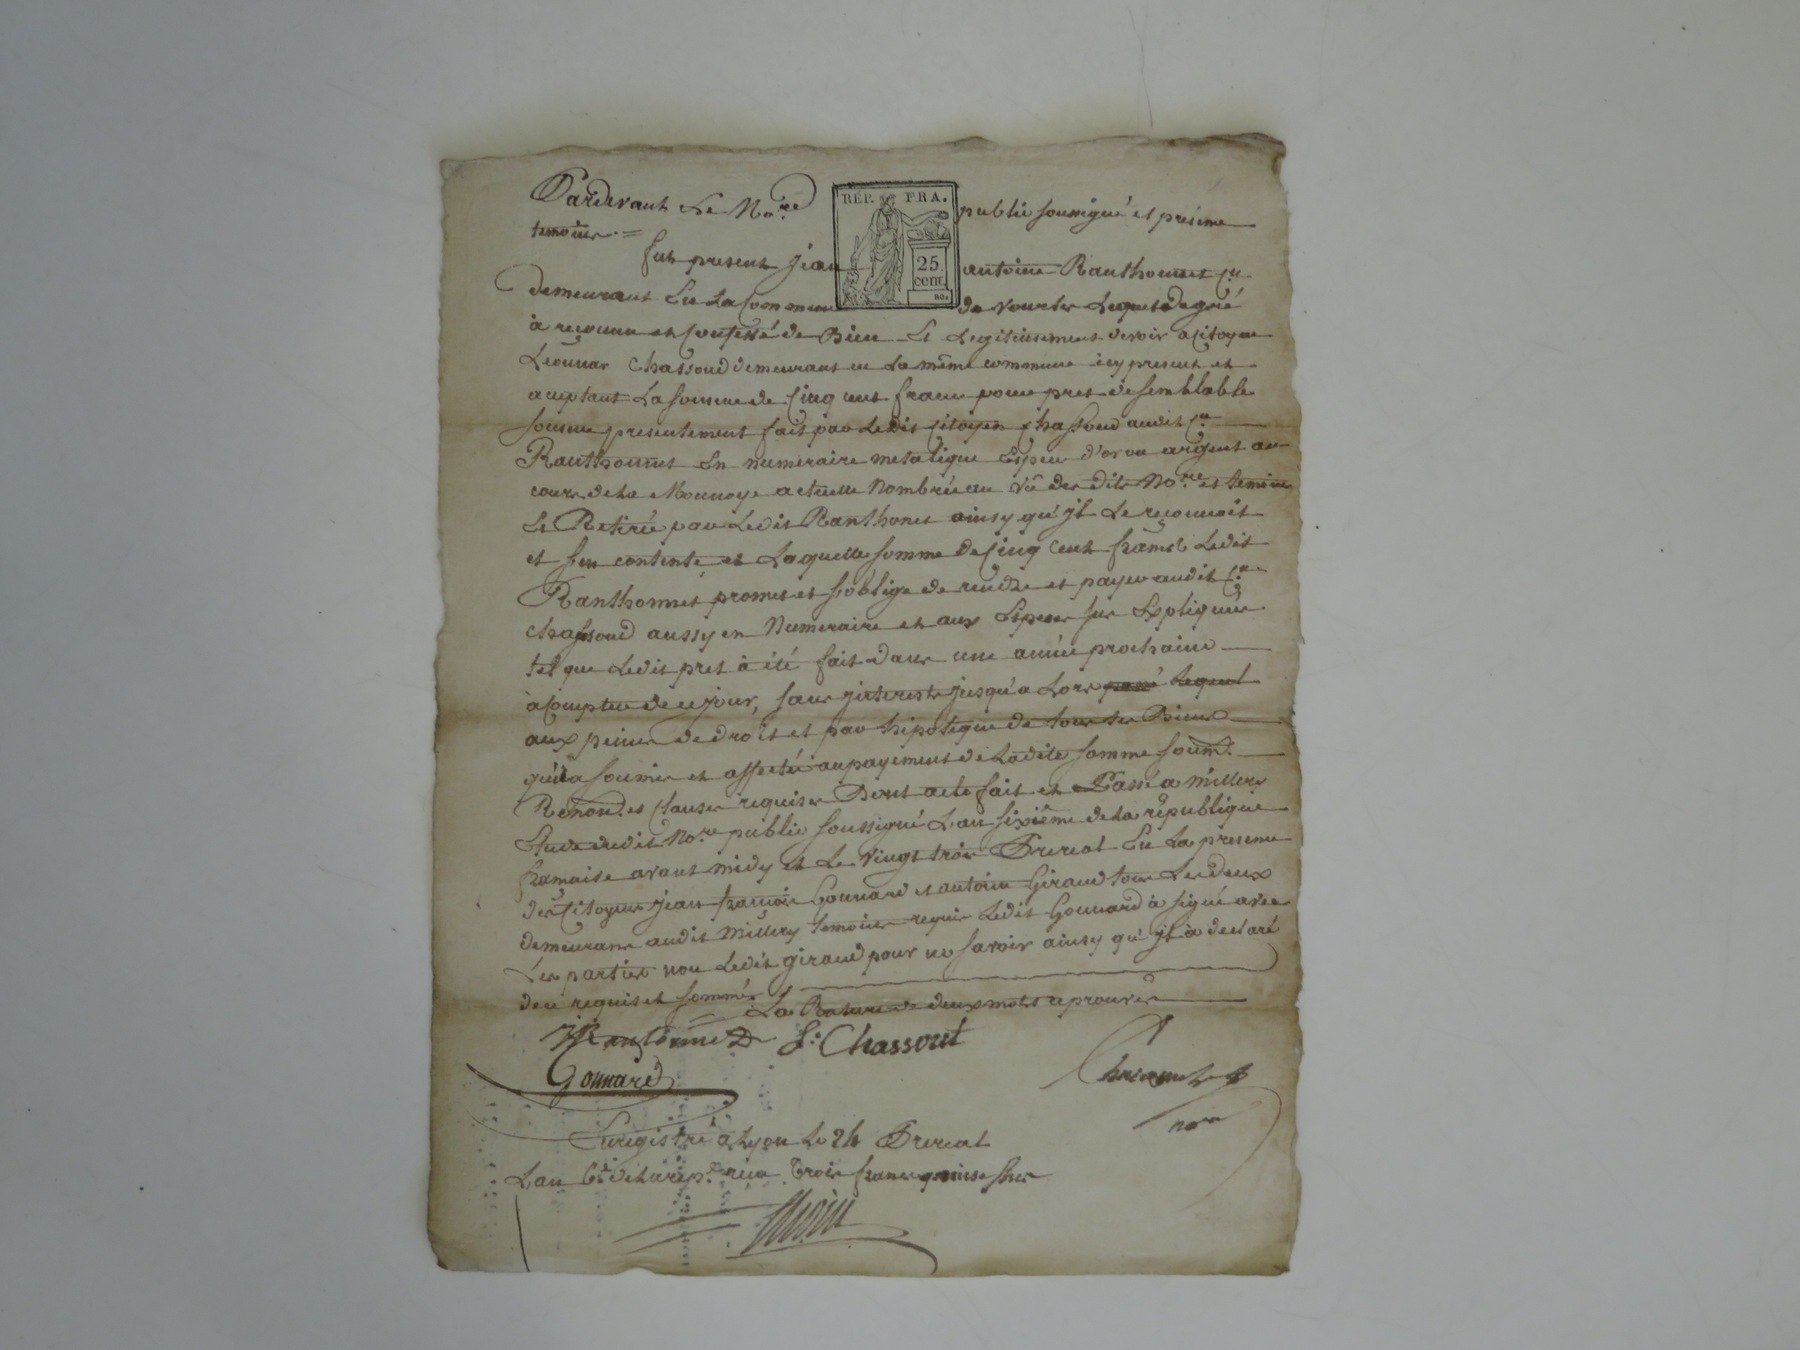 Pardevant Le No.re public soussigné et presens
temoins =
REP. FRA.
25
cent.
fut present jean antoine Ranthonnet C.n
demeurant En La Commune de vourles Lequel de gré
à reconnu et Confessé de Bien Et Legitimement devoir a Citoyen
Léonnar Chassoud demeurant en La même commune icy present et
aceptant La somme de Cinq cent francs pour pret de semblable
somme presentement fait par Ledit Citoyen Chassoud audit C.n
Ranthonnet En numeraire metalique Espece d'or ou argent au
cours de La Monnoye actuelle Nombrée au Vû des dits No.re et temoins
Et Retirée par Ledit Ranthonet ainsy qu'jl Le reconnoit
et s'en contente et Laquelle somme de Cinq Cent francs Ledit
Ranthonnet promet et s'oblige de rendre et payer audit C.n
chassoud aussy en Numeraire et aux Especes sus Expliquées
tel que Ledit pret à été fait dans une année prochaine
à Compter de ce jour, sans jnterests jusqu'a Lors passé Lequel
aux peines de droit et par hipoteque de tous ses Biens
qu'il a soumis et affectés au payement de Ladite somme soum.
Renon. et Clauses requises Dont acte fait et Passé a millery
Etude dudit No.re public soussigné L'an sixième de La republique
francaise avant midy et Le vingt trois Prereal En La presence
des Citoyens jean francois Gonnard et antoine Giraud tous Les deux
demeurans audit Millery temoins requis Ledit Gonnard à signé avec
Les parties non Ledit giraud pour ne savoir ainsy qu'jl à declaré
de ce requis et sommés
La Rature de deux mots aprouvés
JRanthonned L. Chassout
Gonnard
no.re
Enregistré a Lyon le 24 Prereal
L'an 6.e de la rep.e reçu trois francs quinse